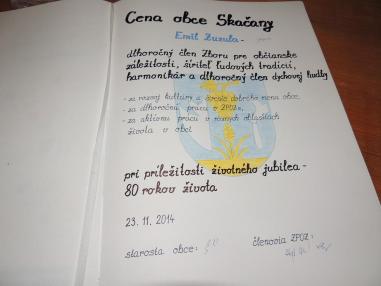 Cena obce Skačany
Emil Zuzula -
dlhoročný člen Zboru pre občianske
záležitosti, šíriteľ ľudových tradícií,
harmonikár a dlhoročný člen dychovej hudby
- za rozvoj kultúry a šírenie dobrého mena obce,
- za dlhoročnú prácu v ZPOZe,
- za aktívnu prácu v rôznych oblastiach
života v obci
pri príležitosti životného jubilea -
80 rokov života
23. 11. 2014
starosta obce:
členovia ZPOZ: